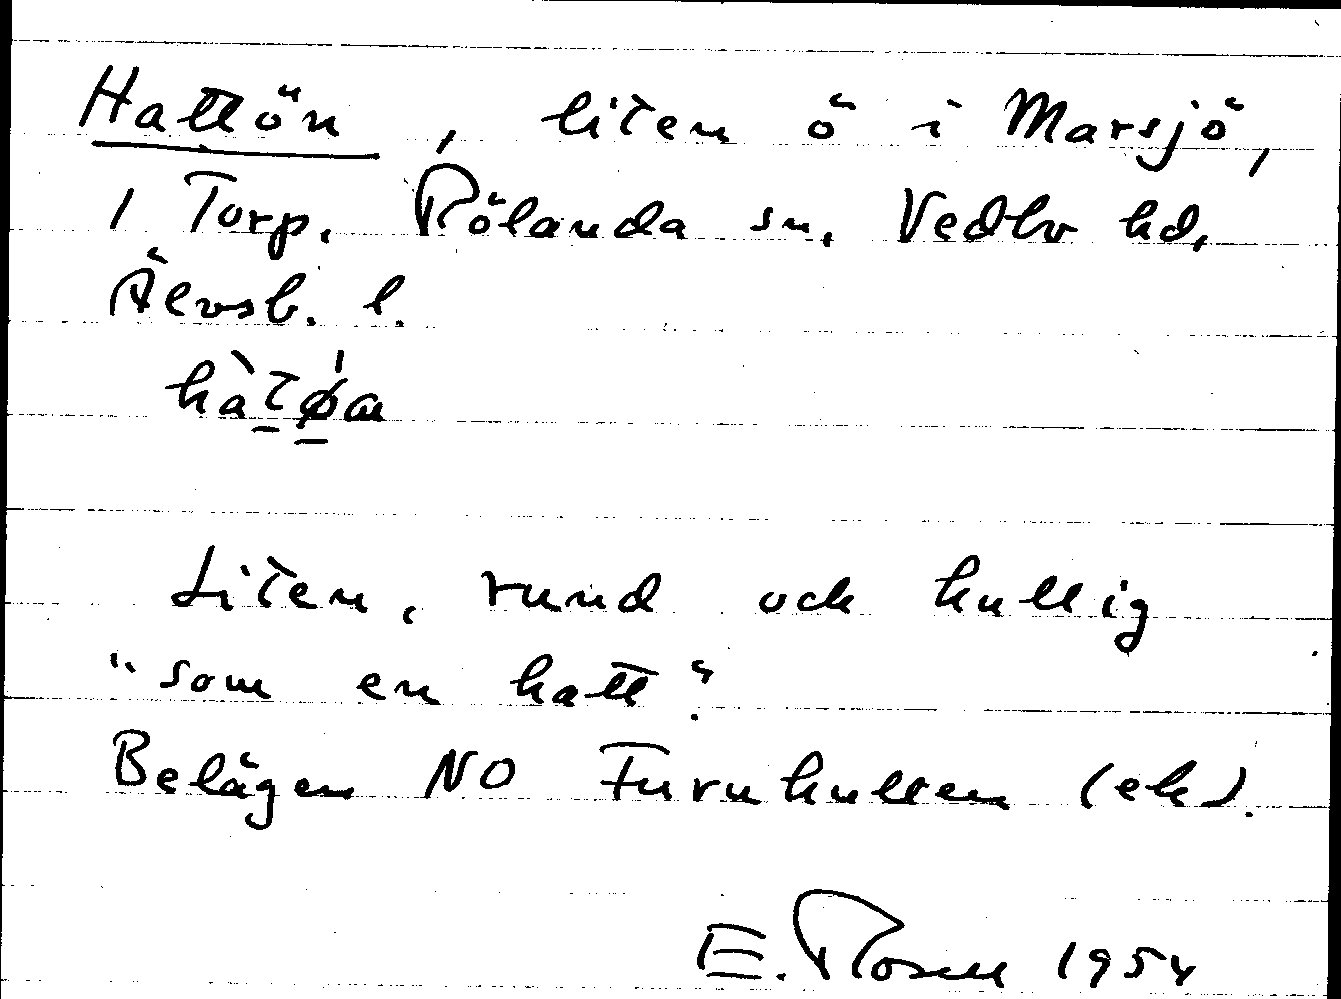 Hattön, liten ö i Marsjö,
1 Torp. Rölanda sn. Vedbo hd,
Älvsb. l.
Liten, rund och kullig
"som en hatt".
Belägen NO Furukullen (ek).
E. Rosell 1954